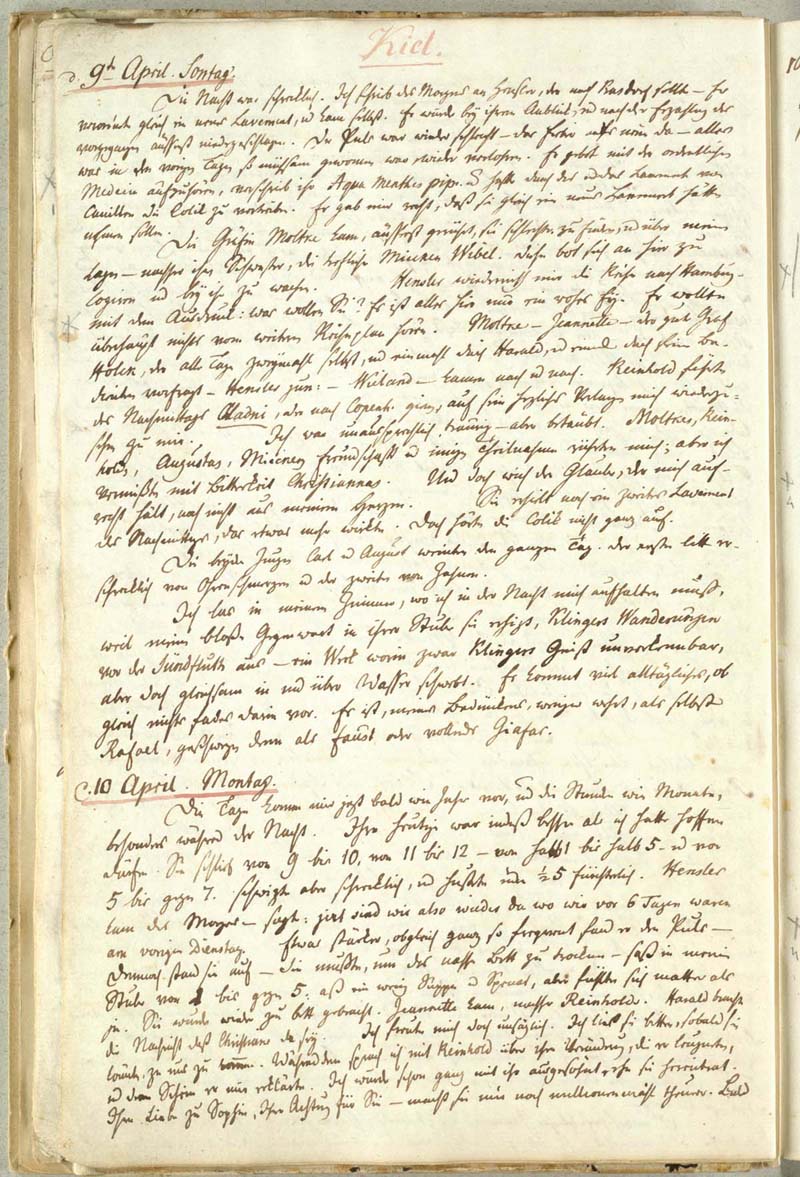 Kiel.
d. 9t April. Sontag.
Die Nacht war schrecklich. Ich schrieb des Morgens an Hensler, der nach Rasdorf sollte – Er
verordnete gleich ein neues Lavement, und kam selbst. Er wurde bey ihrem Anblick, und nach der Erzählung des
vorgegangnen äusserst niedergeschlagen. Der Puls war wieder schlecht – das Fieber mehr wie da – alles
was in den vorigen Tagen so mühsam gewonnen war, wieder verlohren. Er gebot mit der ordentlichen
Medecin aufzuhören, verschrieb ihr Aqua Menthae pip. u suchte durch das und das Lavement von
Camillen die Colik zu vertreiben. Er gab mir recht, daß sie gleich ein neues Lavement hätte
nehmen sollen.
Die Gräfin Moltke kam, äusserst gerührt, sie schlechter zu finden, und über meine
Lage – nachher ihre Schwester, die trefliche Minchen Wibel. Diese bot sich an hier zu
logiren und bey ihr zu wachen. Hensler wiederrieth mir die Reise nach Hamburg –
mit dem Ausdruck: was wollen Sie? Es ist alles hier nur ein
überhaupt nichts vom weitern Reiseplan hören. Moltke – Jeannette – der gute Graf
Holck, der alle Tage zweymahl selbst, und einmahl durch Harald, und einmal durch seinen Be-
dienten nachfragt – Hensler jun: – Wieland – kamen nach und nach. Reinhold führte
des Nachmittags Cladni, der nach Copenh. ging, auf sein herzliches Verlangen mich wiederzu-
sehn zu mir. Ich war unaussprechlich traurig – aber betäubt. Moltkes, Rein-
holds, Augustas, Minchens Freundschaft und innige Theilnahme rührten mich; aber ich
vermißte mit Bitterkeit Christiannas. Und doch wich der Glaube, der mich auf-
recht hält, noch nicht aus meinem Herzen. Sie erhielt noch ein zweites Lavement
des Nachmittags, das etwas mehr wirkte. Doch hörte die Colik nicht ganz auf.
Die beyden Jungen Carl und August weinten den ganzen Tag. der erste litt er-
schrecklich von Ohrenschmerzen und der zweite von Zahnen.
Ich las in meinem Zimmer, wo ich in der Nacht mich aufhalten muß,
weil meine bloße Gegenwart in ihrer Stube sie erhizt, Klingers Wanderungen
vor der Sündfluth aus – ein Werk worin zwar Klingers Geist unverkennbar,
aber doch gleichsam in und über Wasser schwebt. Es kommt viel alltägliches, ob
gleich nichts fades darin vor. Es ist, meines Bedünkens, weniger werth, als selbst
Rafael, geschweige denn als Faust oder vollends Giafar.
C. 10 April. Montag.
Die Tage kommen mir jezt bald wie Jahre vor, und die Stunden wie Monate,
besonders während der Nacht. Ihre heutige war indeß besser als ich hatte hoffen
dürfen. Sie schlief von 9 bis 10, von 11 bis 12 – von halb 1 bis halb 5 – und von
5 bis gegen 7. schwizte aber schrecklich, und hustete um ½ 5 fürchterlich. Hensler
kam des Morgens – sagte: jezt sind wir also wieder da wo wir vor 6 Tagen waren
am vorigen Dienstag. Etwas stärker, obgleich ganz so frequent fand er den Puls –
Dennoch stand sie auf – Sie mußte, um das nasse Bett zu trocknen – saß in meiner
Stube von 1 bis gegen 5: aß ein wenig Suppe und Spinat, aber fühlte sich matter als
je. Sie wurde wieder zu bett gebracht. Jeannette kam, nachher Reinhold. Harald brachte
die Nachricht daß Christiane da sey. Ich freute mich doch unsäglich. Ich ließ sie bitten, sobald sie
könnte, zu mir zu kommen. Währenddem sprach ich mit Reinhold über ihre Veränderung, die er leugnete,
und deren Schein er mir erklärte. Ich wurde schon ganz mit ihr ausgesöhnt, ehe sie hereintrat.
Ihre Liebe zu Sophie, Ihre Achtung für Sie – macht sie mir noch millionenmahl theurer. Bald